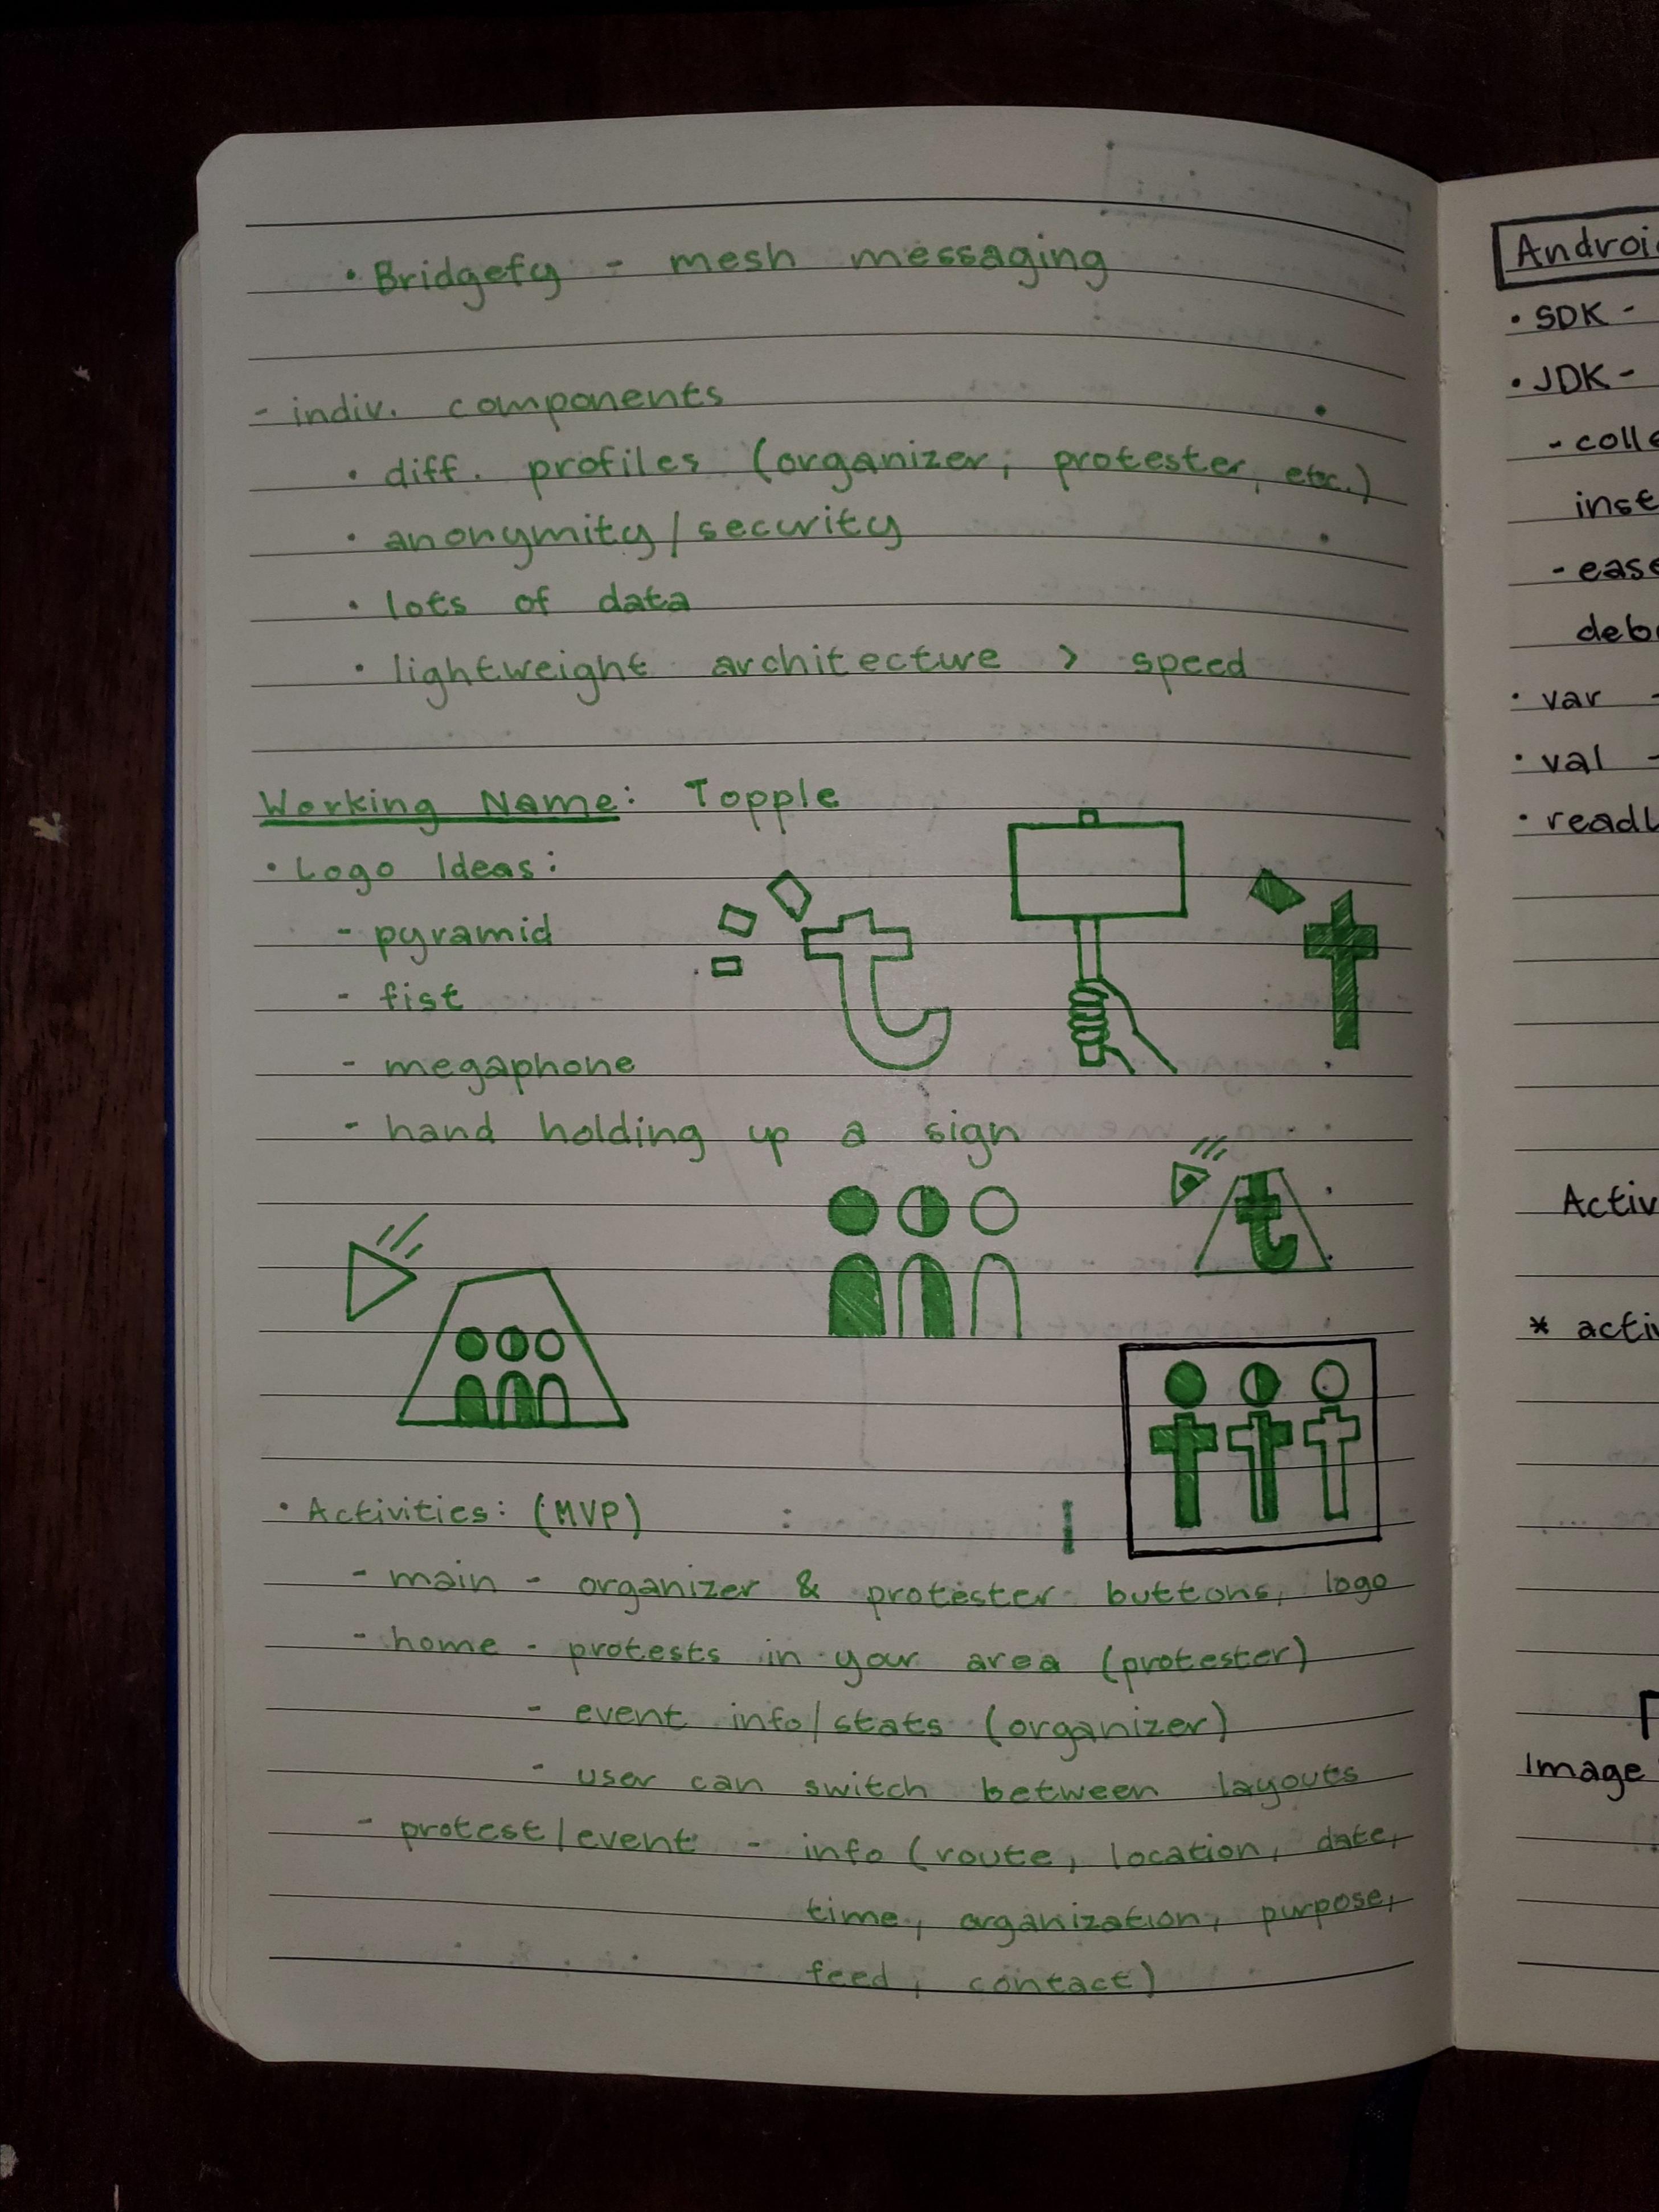 • Bridgefy - mesh messaging
- indiv. components
• diff. profiles (organizer, protester, etc.)
• anonymity/security
• lots of data
• lightweight architecture > speed
Working Name: Topple
• Logo Ideas:
- pyramid
- fist
- megaphone
- hand holding up a sign
t
t
• Activities: (MVP)
- main - organizer & protester buttons, logo
- home - protests in your area (protester)
- event info/stats (organizer)
- user can switch between layouts
- protest/event - info (route, location, date,
time, organization, purpose,
feed, contact)
• SDK -
• JDK -
• var
• val
* 
Image